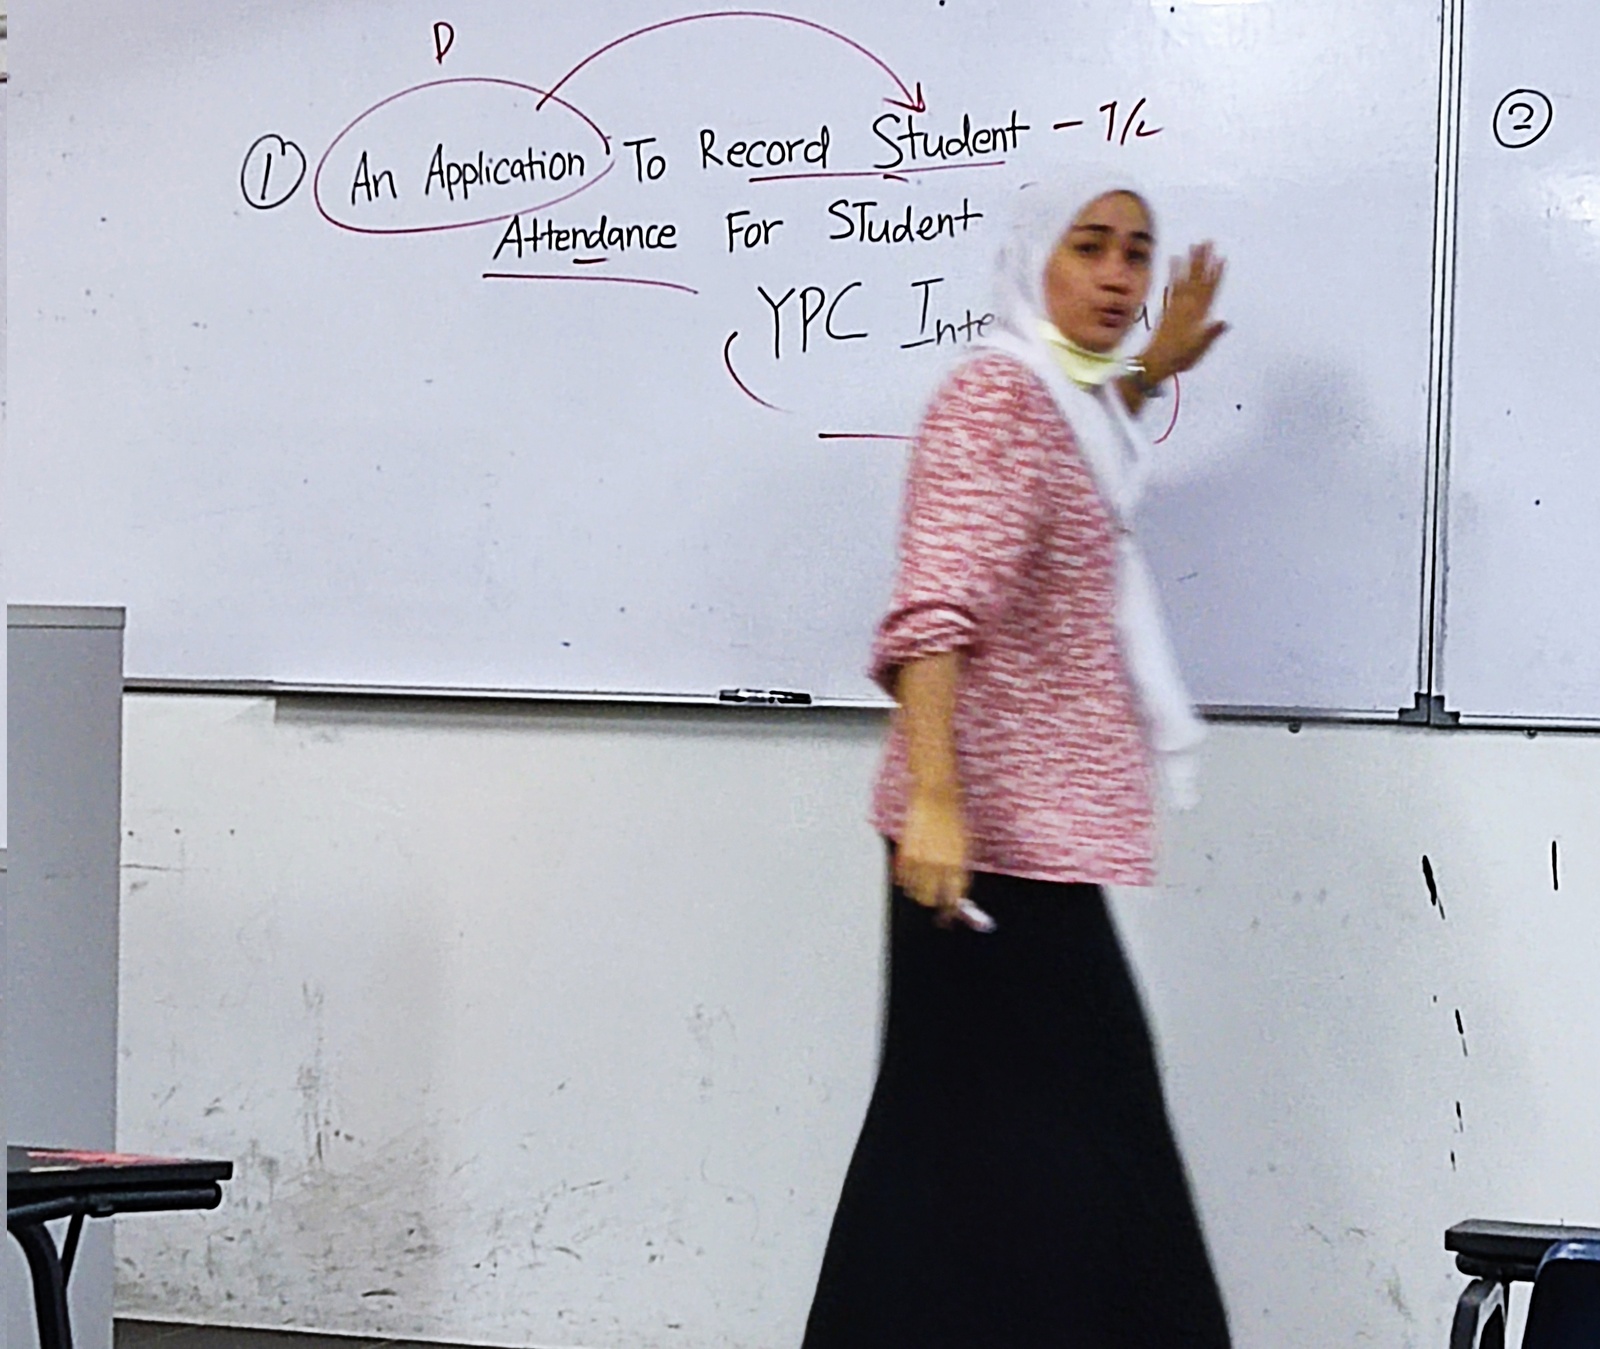 D
① An Application To Record Student - 1/2
Attendance For STudent
YPC
②